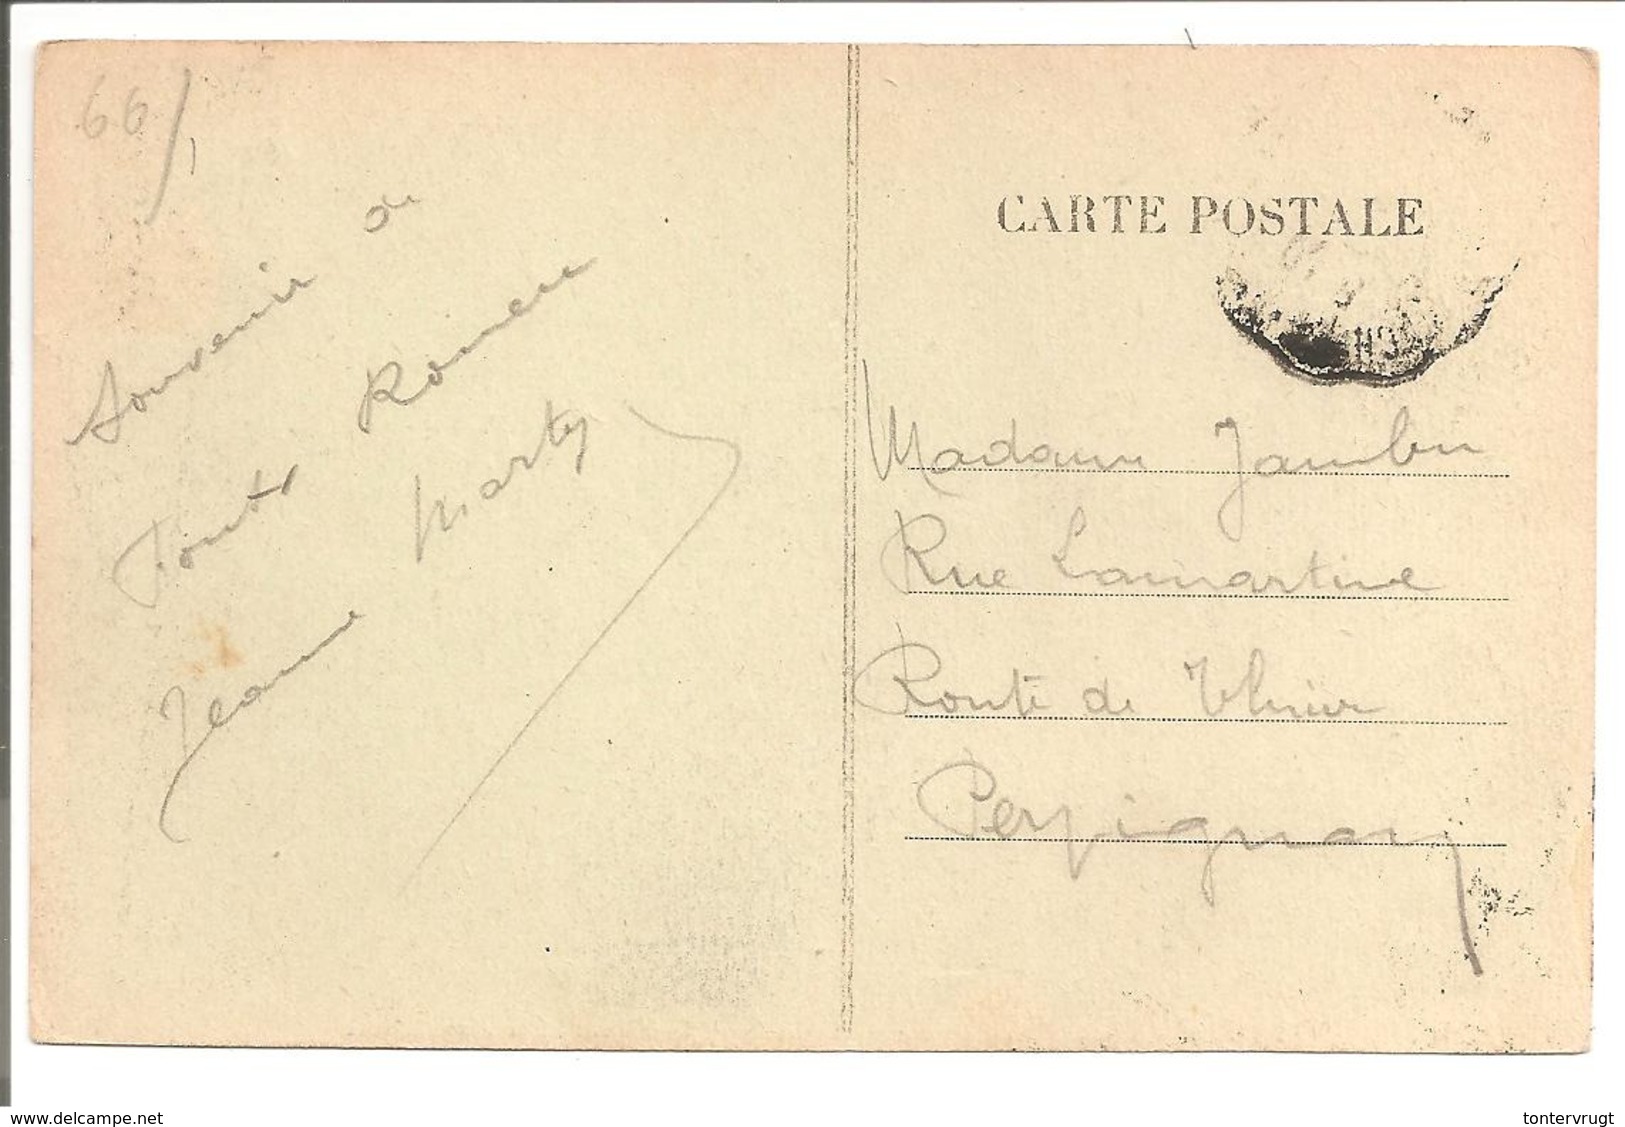 66/
Souvenir de
Fonts Romeu
Jeanne Marty
CARTE POSTALE
Madame Jambu
Rue Lamartine
Route de Thuir
Perpignan
www.delcampe.net
tontervrugt